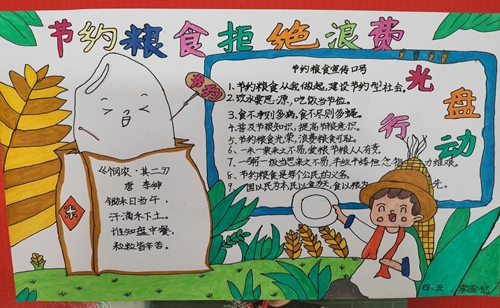 节约粮食拒绝浪费
节约
光盘
行动
节约粮食宣传口号
1、节约粮食从我做起,建设节约型社会。
2、饮水要思源,吃饭当节俭。
3、食不净则多病,食不尽则多蝇。
4、普及节粮知识,提高节粮意识。
5、节约粮食光荣,浪费粮食可耻。
6、一米一粟来之不易,爱粮节粮人人有责。
7、一粥一饭当思来之不易,半丝半缕恒念物力维艰。
8、节约粮食是每个公民的义务。
9、国以民为本民以食为天,食以粮为 先。
《悯农·其二》
唐 李绅
锄禾日当午,
汗滴禾下土。
谁知盘中餐,
粒粒皆辛苦。
米
四、五